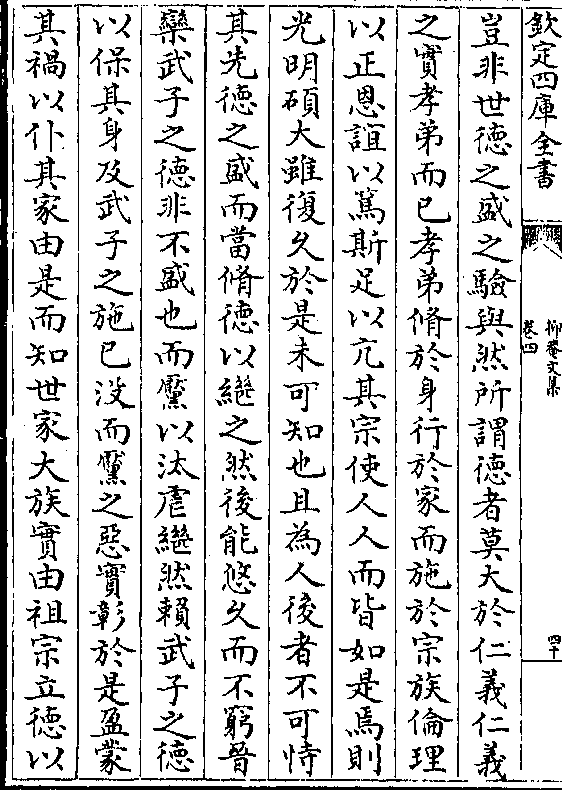 欽定四庫全書
抑菴文集
卷四
四十
豈非世德之盛之驗與然所謂德者莫大於仁義仁義
之實孝弟而已孝弟脩於身行於家而施於宗族倫理
以正恩誼以篤斯足以亢其宗使人人而皆如是焉則
光明碩大雖復久於是未可知也且為人後者不可恃
其先德之盛而當脩德以繼之然後能悠久而不窮晉
欒武子之德非不盛也而黶以汰虐繼然賴武子之德
以保其身及武子之施已没而黶之惡實彰於是盈蒙
其禍以仆其家由是而知世家大族實由祖宗立德以